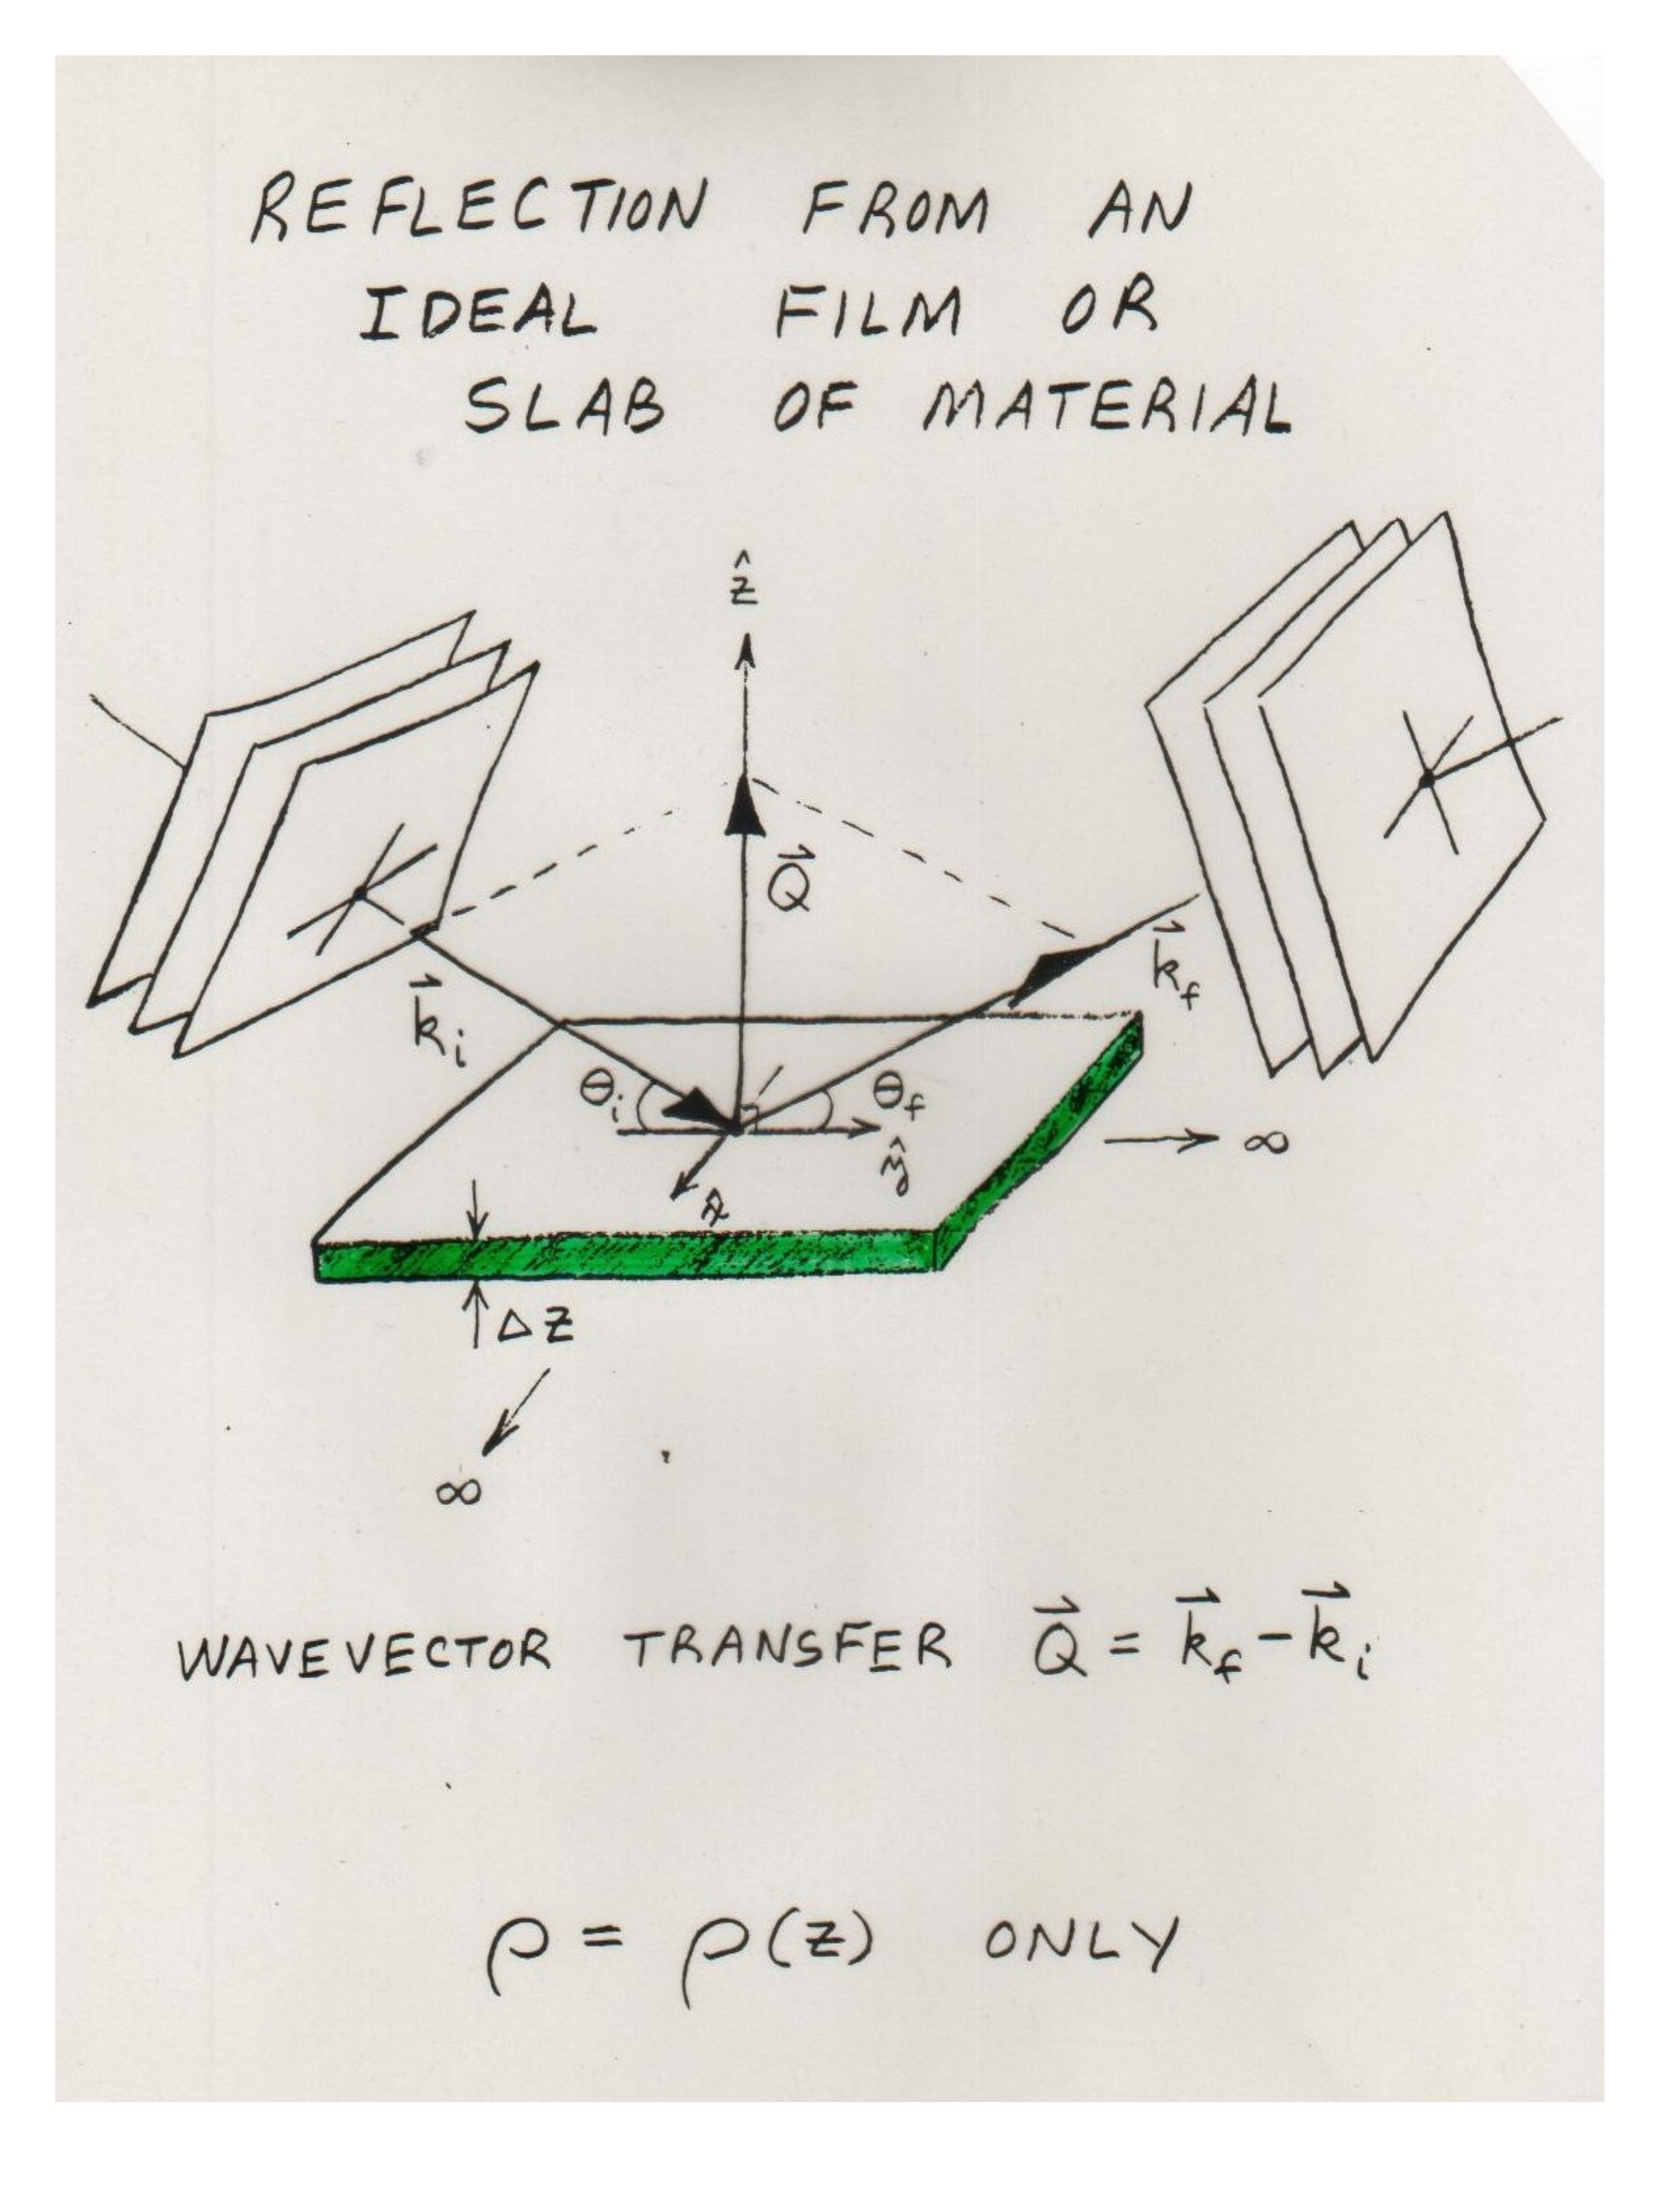 REFLECTION FROM AN
IDEAL FILM OR
SLAB OF MATERIAL
ẑ
Q⃗
k⃗f
k⃗i
θi
θf
ŷ
x̂
→ ∞
Δz
∞
WAVEVECTOR TRANSFER Q⃗ = k⃗f - k⃗i
ρ = ρ(z) ONLY